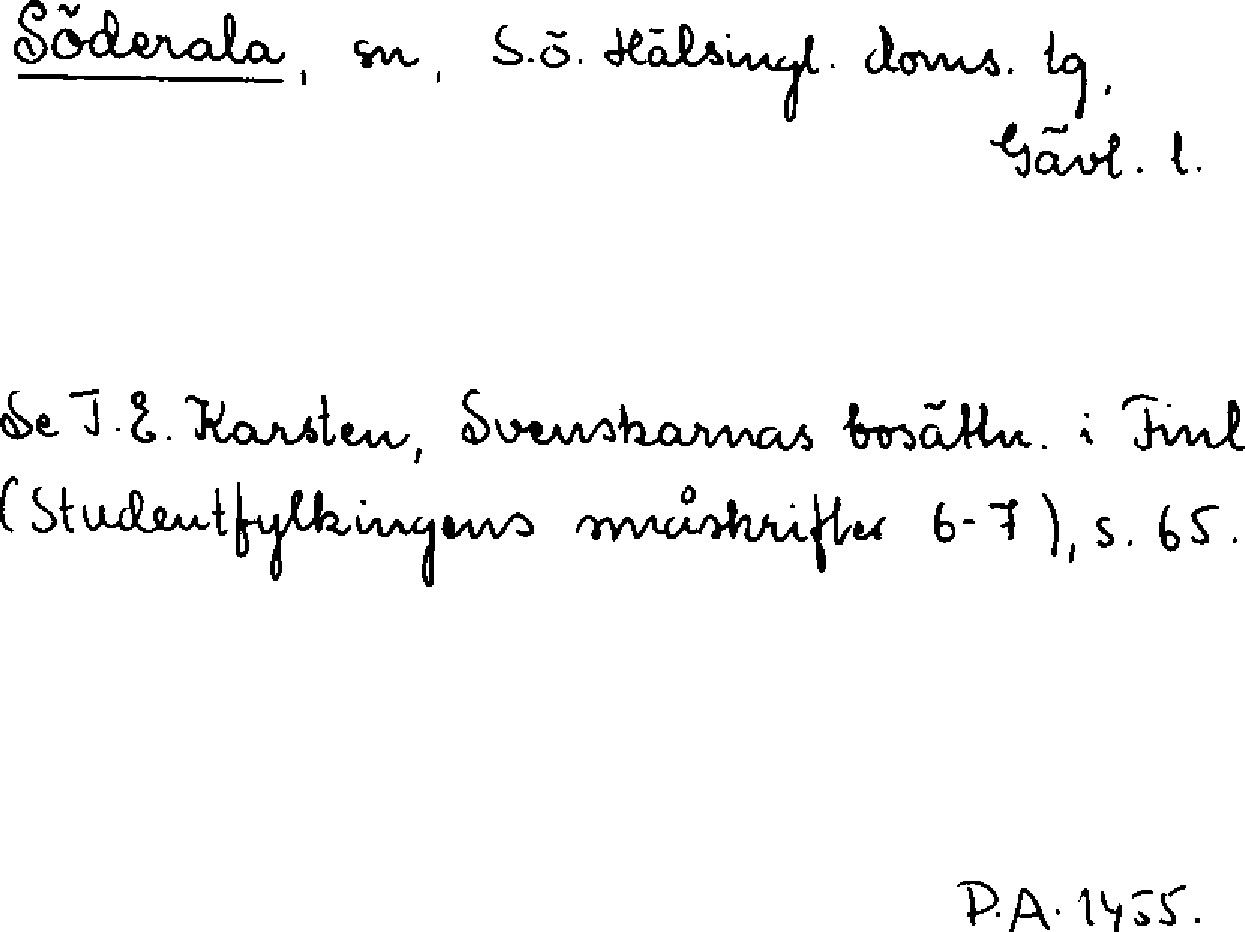 Söderala, sn, S.ö. Hälsingl. doms. tg,
Gävl. l.
Se T.E. Karsten, Svenskarnas bosättn. i Finl
(Studentfylkingens småskrifter 6-7), s. 65.
P.A. 1455.